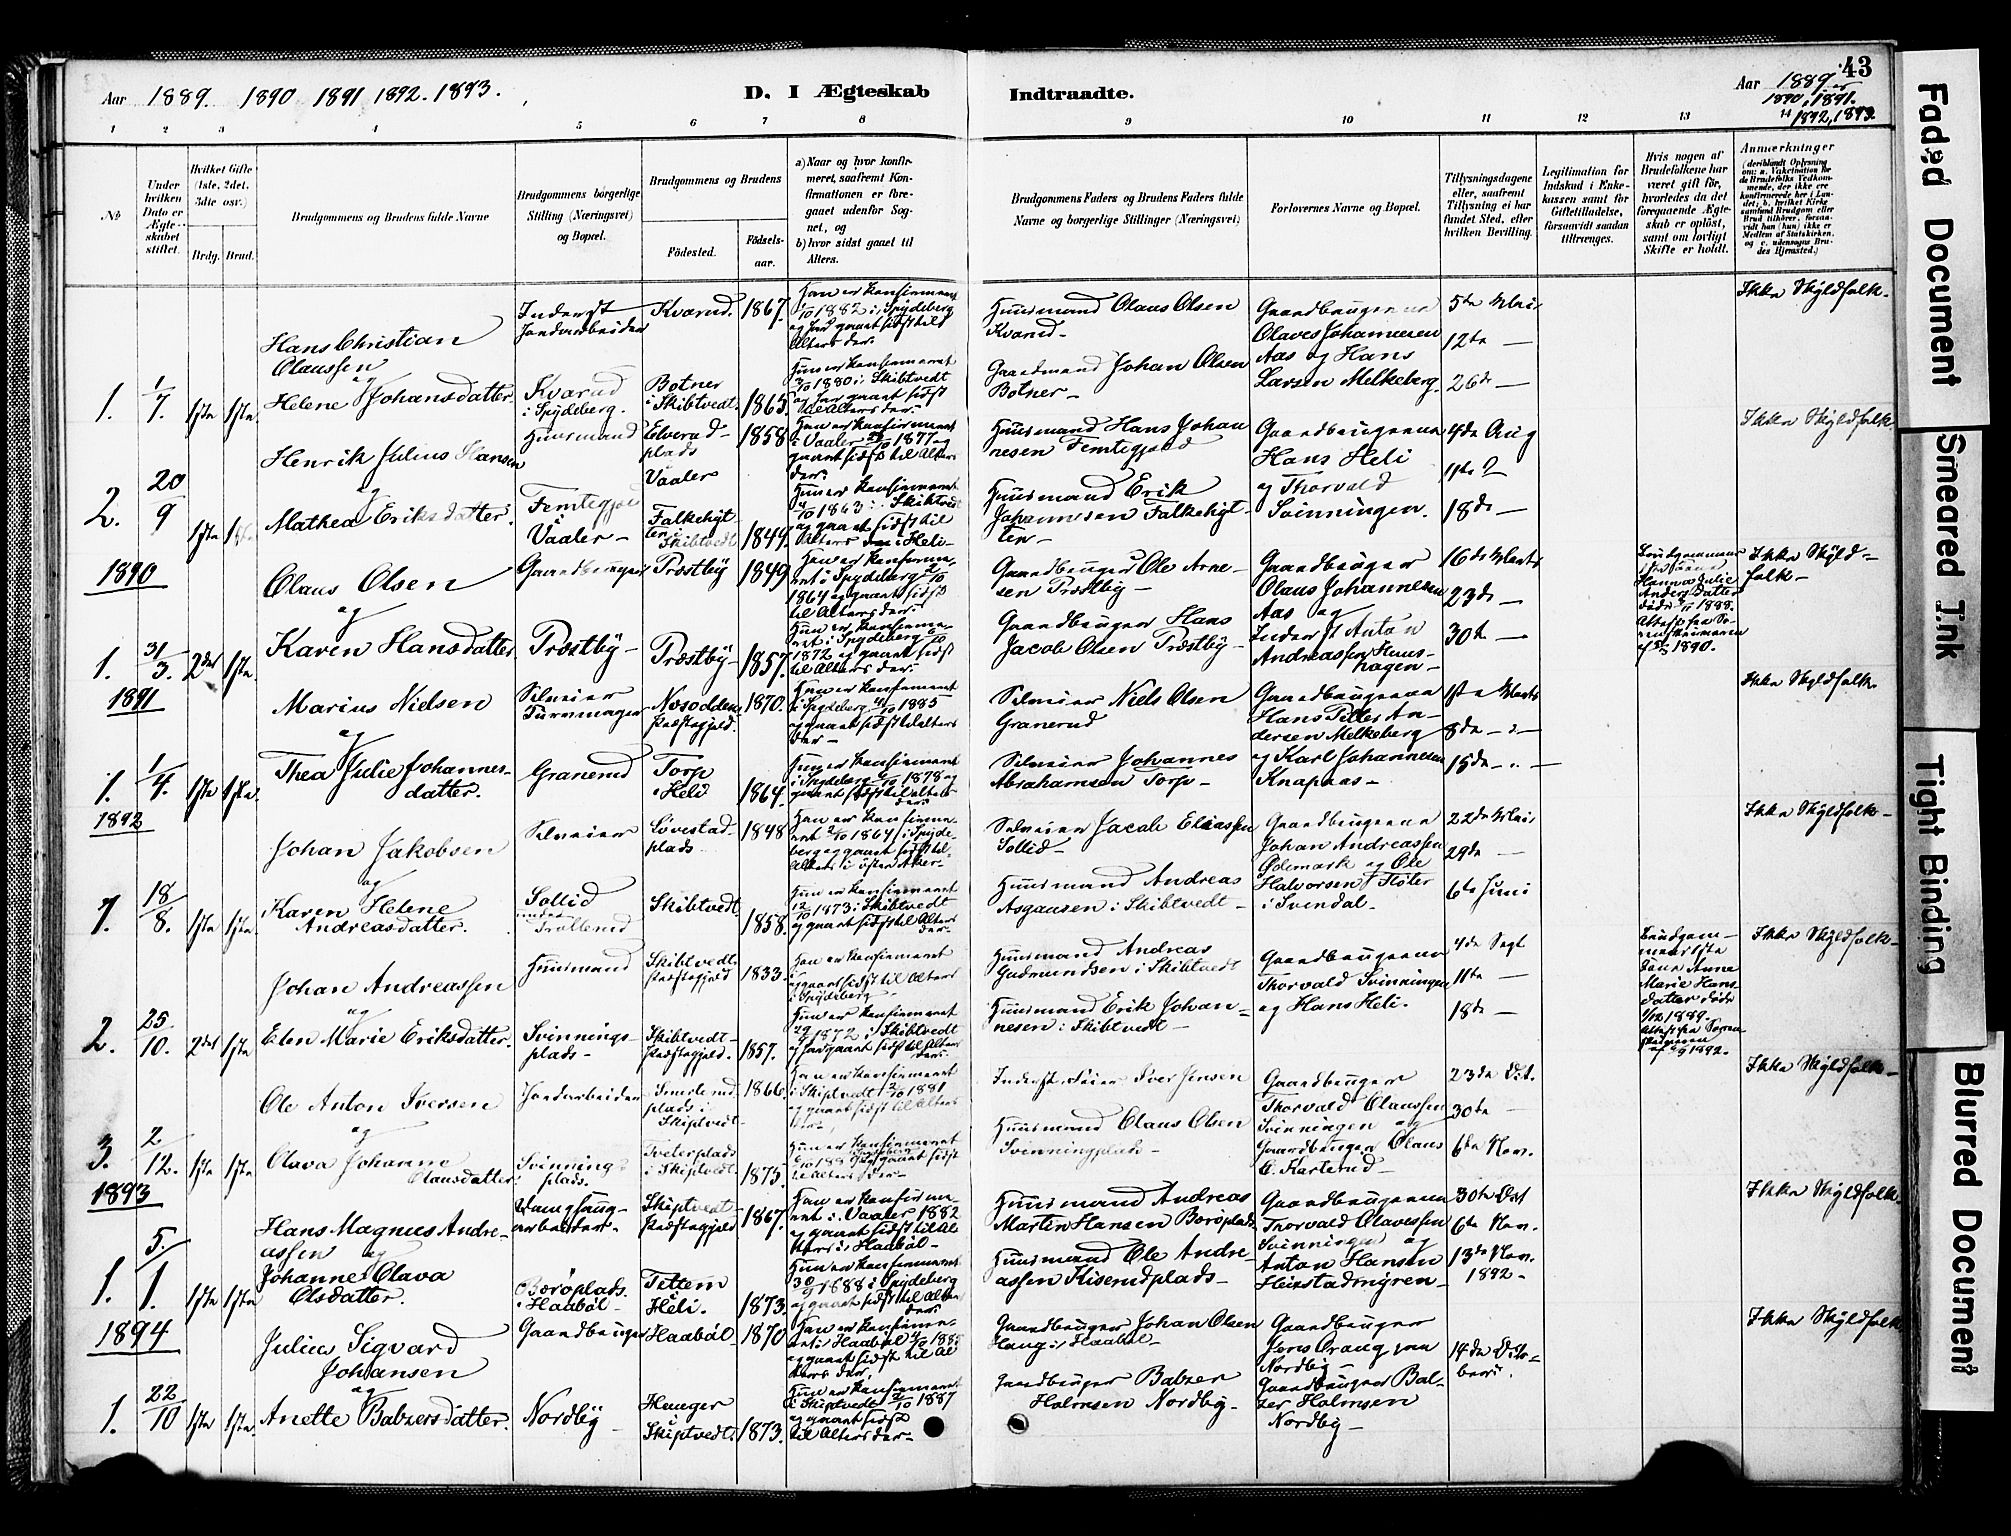 Aar 1889. 1890 1891 1892. 1893.
D. I Ægteskab Indtraadte.
Aar 1889. 43
1890, 1891.
1892, 1893.
1 2 3 4 5 6 7 8 9 10 11 12 13 14
No
Under hvilken Dato er Ægteskabet stiftet.
Hvilket Gifte (1ste, 2det, 3die osv.)
Brdg. Brud.
Brudgommens og Brudens fulde Navne
Brudgommens borgerlige Stilling (Næringsvei) og Bopæl.
Brudgommens og Brudens
Födested. Födselsaar.
a) Naar og hvor konfirmeret, saafremt Konfirmationen er foregaaet udenfor Sognet, og
b) hvor sidst gaaet til Alters.
Brudgommens Faders og Brudens Faders fulde Navne og borgerlige Stillinger (Næringsvei)
Forlovernes Navne og Bopæl.
Tillysningsdagene eller, saafremt Tillysning ei har fundet Sted, efter hvilken Bevilling.
Legitimation for Indskud i Enkekassen samt for Giftetilladelse, forsaavidt saadan tiltrænges.
Hvis nogen af Brudefolkene har været gift för, hvorledes da det foregaaende Ægteskab er oplöst, samt om lovligt Skifte er holdt.
Anmærkninger
(deriblandt Oplysning om: a. Vakcination for de Brudefolks Vedkommende, der ikke ere konfirmerede her i Landet; b. hvilket Kirkesamfund Brudgom eller Brud tilhörer, forsaavidt han (hun) ikke er Medlem af Statskirken, og c. udensogns Brudes Hjemsted.)
1. 1/7. 1ste 1ste.
Hans Christian
Olaussen
og
Helene Johansdatter.
Inderst
Jordarbeider
Kvarud
i Spydeberg.
Kvarud. 1867.
Botner
i Skibtvedt. 1865.
Han er konfirmeret
1/10 1882 i Spydeberg
og har gaaet sidst til
Alters der.
Hun er konfirmeret
1880 i Skibtvedt
og har gaaet sidst
til Alters der.
Huusmand Olaus Olsen
Kvarud.
Gaardmand Johan Olsen
Botner
Gaardbrugerne
Olaves Johannesen
Aas og Hans
Larsen Melkeberg.
5te Mai
12te —
26de —
Ikke Skyldfolk.
2. 20/9 1ste 1ste
Henrik Julius Hansen
og
Mathea Eriksdatter.
Huusmand
Femtegjeld
i
Vaaler
Elverud
plads
Vaaler 1858
Falkehytten
i Skibtvedt 1849.
Han er konfirmeret
i Vaaler 1877 og
gaaet sidst til Alters
der.
Hun er konfirmeret
1863 i Skibtvedt
og gaaet sidst til
Alters i Heli
Huusmand Hans Johannesen
Femtegjeld
Huusmand Erik
Johannesen Falkehytten
Gaardbrugerne
Hans Heli
og Thorvald
Svinningen.
4de Aug
11te
18de —
Ikke Skyldfolk
1890
1. 31/3. 2det 1ste.
Olaus Olsen
og
Karen Hansdatter
Gaardbruger
Præstby
Præstby 1849
Præstby 1857.
Han er konfirmeret
i Spydeberg 2/10
1864 og gaaet sidst
til Alters der.
Hun er konfirmeret
i Spydeberg 6/10
1872 og gaaet sidst
til Alters der.
Gaardbruger Ole Arnesen
Præstby
Gaardbruger Hans
Jacob Olsen Præstby
Gaardbruger
Olaus Johannesen
Aas og
Inderst Anton
Andreassen Huushagen
16de Marts
23de —
30te —
Hanna Julie
Andersdatter
døde 1888.
1890.
Ikke Skyldfolk
1891
1. 1/4. 1ste 1ste.
Marius Nielsen
og
Thea Julie Johannesdatter.
Selveier
Granerud
Nesodden
Præstegjeld. 1870.
Torp
i Heli 1864.
Han er konfirmeret
i Spydeberg 1885
og gaaet sidst til Alters
der
Hun er konfirmeret
i Spydeberg 1878 og
gaaet sidst til Alters
der.
Selveier Niels Olsen
Granerud
Selveier Johannes
Abrahamsen Torp
Gaardbrugerne
Hans Petter Andersen
Melkeberg
og Karl Johannesen
Knapaas
1ste Marts
8de —
15de —
Ikke Skyldfolk.
1892
1. 18/8. 1ste 1ste
Johan Jakobsen
og
Karen Helene
Andreasdatter.
Selveier
Sollid
under
Trollerud
Løvestad
plads 1848
Skibtvedt 1858.
Han er konfirmeret
1864 i Spydeberg
og gaaet sidst til
Alters i østre Aker
Hun er konfirmeret
12/10 1873 i Skibtvedt
og gaaet sidst til Alters
der.
Selveier Jacob Eliassen
Sollid
Huusmand Andreas
Asgausen i Skibtvedt
Gaardbrugerne
Johan Andreassen
Ødemark og Ole
Halvorsen Fløter
i Svendal.
22de Mai
29de —
6te Juni
Ikke Skyldfolk
2. 25/10. 2det 1ste
Johan Andreassen
og
Elen Marie Eriksdatter.
Huusmand
Svinnings-
plads
Skibtvedt
Præstegjeld 1833.
Skibtvedt
Præstegjeld. 1857.
Han er konfirmeret
og gaaet sidst til Alters
i Spydeberg
Hun er konfirmeret
29/9 1872 i Skibtvedt
og har gaaet sidst til Alters
der.
Huusmand Andreas
Gudmundsen i Skibtvedt
Huusmand Erik Johannesen
i Skibtvedt
Gaardbrugerne
Thorvald Svinningen
og Hans Heli.
4de Sept
11te —
18de —
Brudgommens 1ste
Kone Anne
Marie Hansdatter
døde
1/12 1889.
1892.
Ikke Skyldfolk
3. 2/12. 1ste 1ste
Ole Anton Iversen
og
Olava Johanne
Olausdatter
Jordarbeider
Svinnings
plads.
Smerud
plads i
Skiptvedt 1866.
Tveterplads
i Skiptvedt 1875.
Han er konfirmeret
i Skiptvedt 2/10 1881
og gaaet sidst til Alters
der.
Hun er konfirmeret
og gaaet sidst
til Alters der
Iver Jensen
Huusmand Olaus Olsen
Svinningplads
Gaardbruger
Thorvald Olaussen
Svinningen og
Gaardbruger Olaus
C. Karterud
23de Okt.
30te —
6te Nov.
Ikke Skyldfolk
1893
1. 5/1. 1ste 1ste
Hans Magnus Andreassen
og
Johanne Olava
Olsdatter.
Børøplads.
i Haabøl
Skiptvedt
Præstegjeld 1867.
Tettem
Heli. 1873.
Han er konfirmeret
i Vaaler 1882
og gaaet sidst til Alters
i Haabøl
Hun er konfirmeret
30/9 1888 i Spydeberg
og gaaet sidst til Alters
der.
Huusmand Andreas
Martin Hansen Børøplads
Huusmand Ole Andreassen
Kiserudplads
Gaardbrugerne
Thorvald Olavessen
Svinningen og
Anton Hansen
Huustadmyren
30te Okt
6te Nov.
13de Nov.
1892
Ikke Skyldfolk
1894
1. 22/10 1ste 1ste.
Julius Sigvard
Johansen
og
Anette Balzersdatter.
Gaardbruger
Nordby
Haabøl 1870
Hauger
i
Skiptvedt. 1873.
Han er konfirmeret
i Haabøl 1885
og gaaet sidst til Alters
der.
Hun er konfirmeret
i Skiptvedt 2/10 1887
og gaaet sidst
til Alters der
Gaardbruger Johan Olsen
Haug i Haabøl
Gaardbruger Balzer
Holmsen Nordby
Gaardbruger
Nordby
Gaardbruger Balzer
Holmsen
Nordby
14de Oktober
Ikke Skyldfolk
Faded Document
Smeared Ink
Tight Binding
Blurred Document